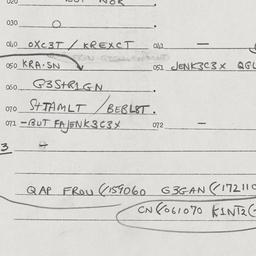 030 O
040 OXC3T / KREXCT 041 —
050 KRA·SN 051 JENK3C3X QGL
060 G3STR1GN
070 STTAMLT / BEBLBT.
071 –BUT FAJENK3C3X 072 —
3
QAP FROU (/159060 G3GAN (/17211
CN (/061070 K1NT2(